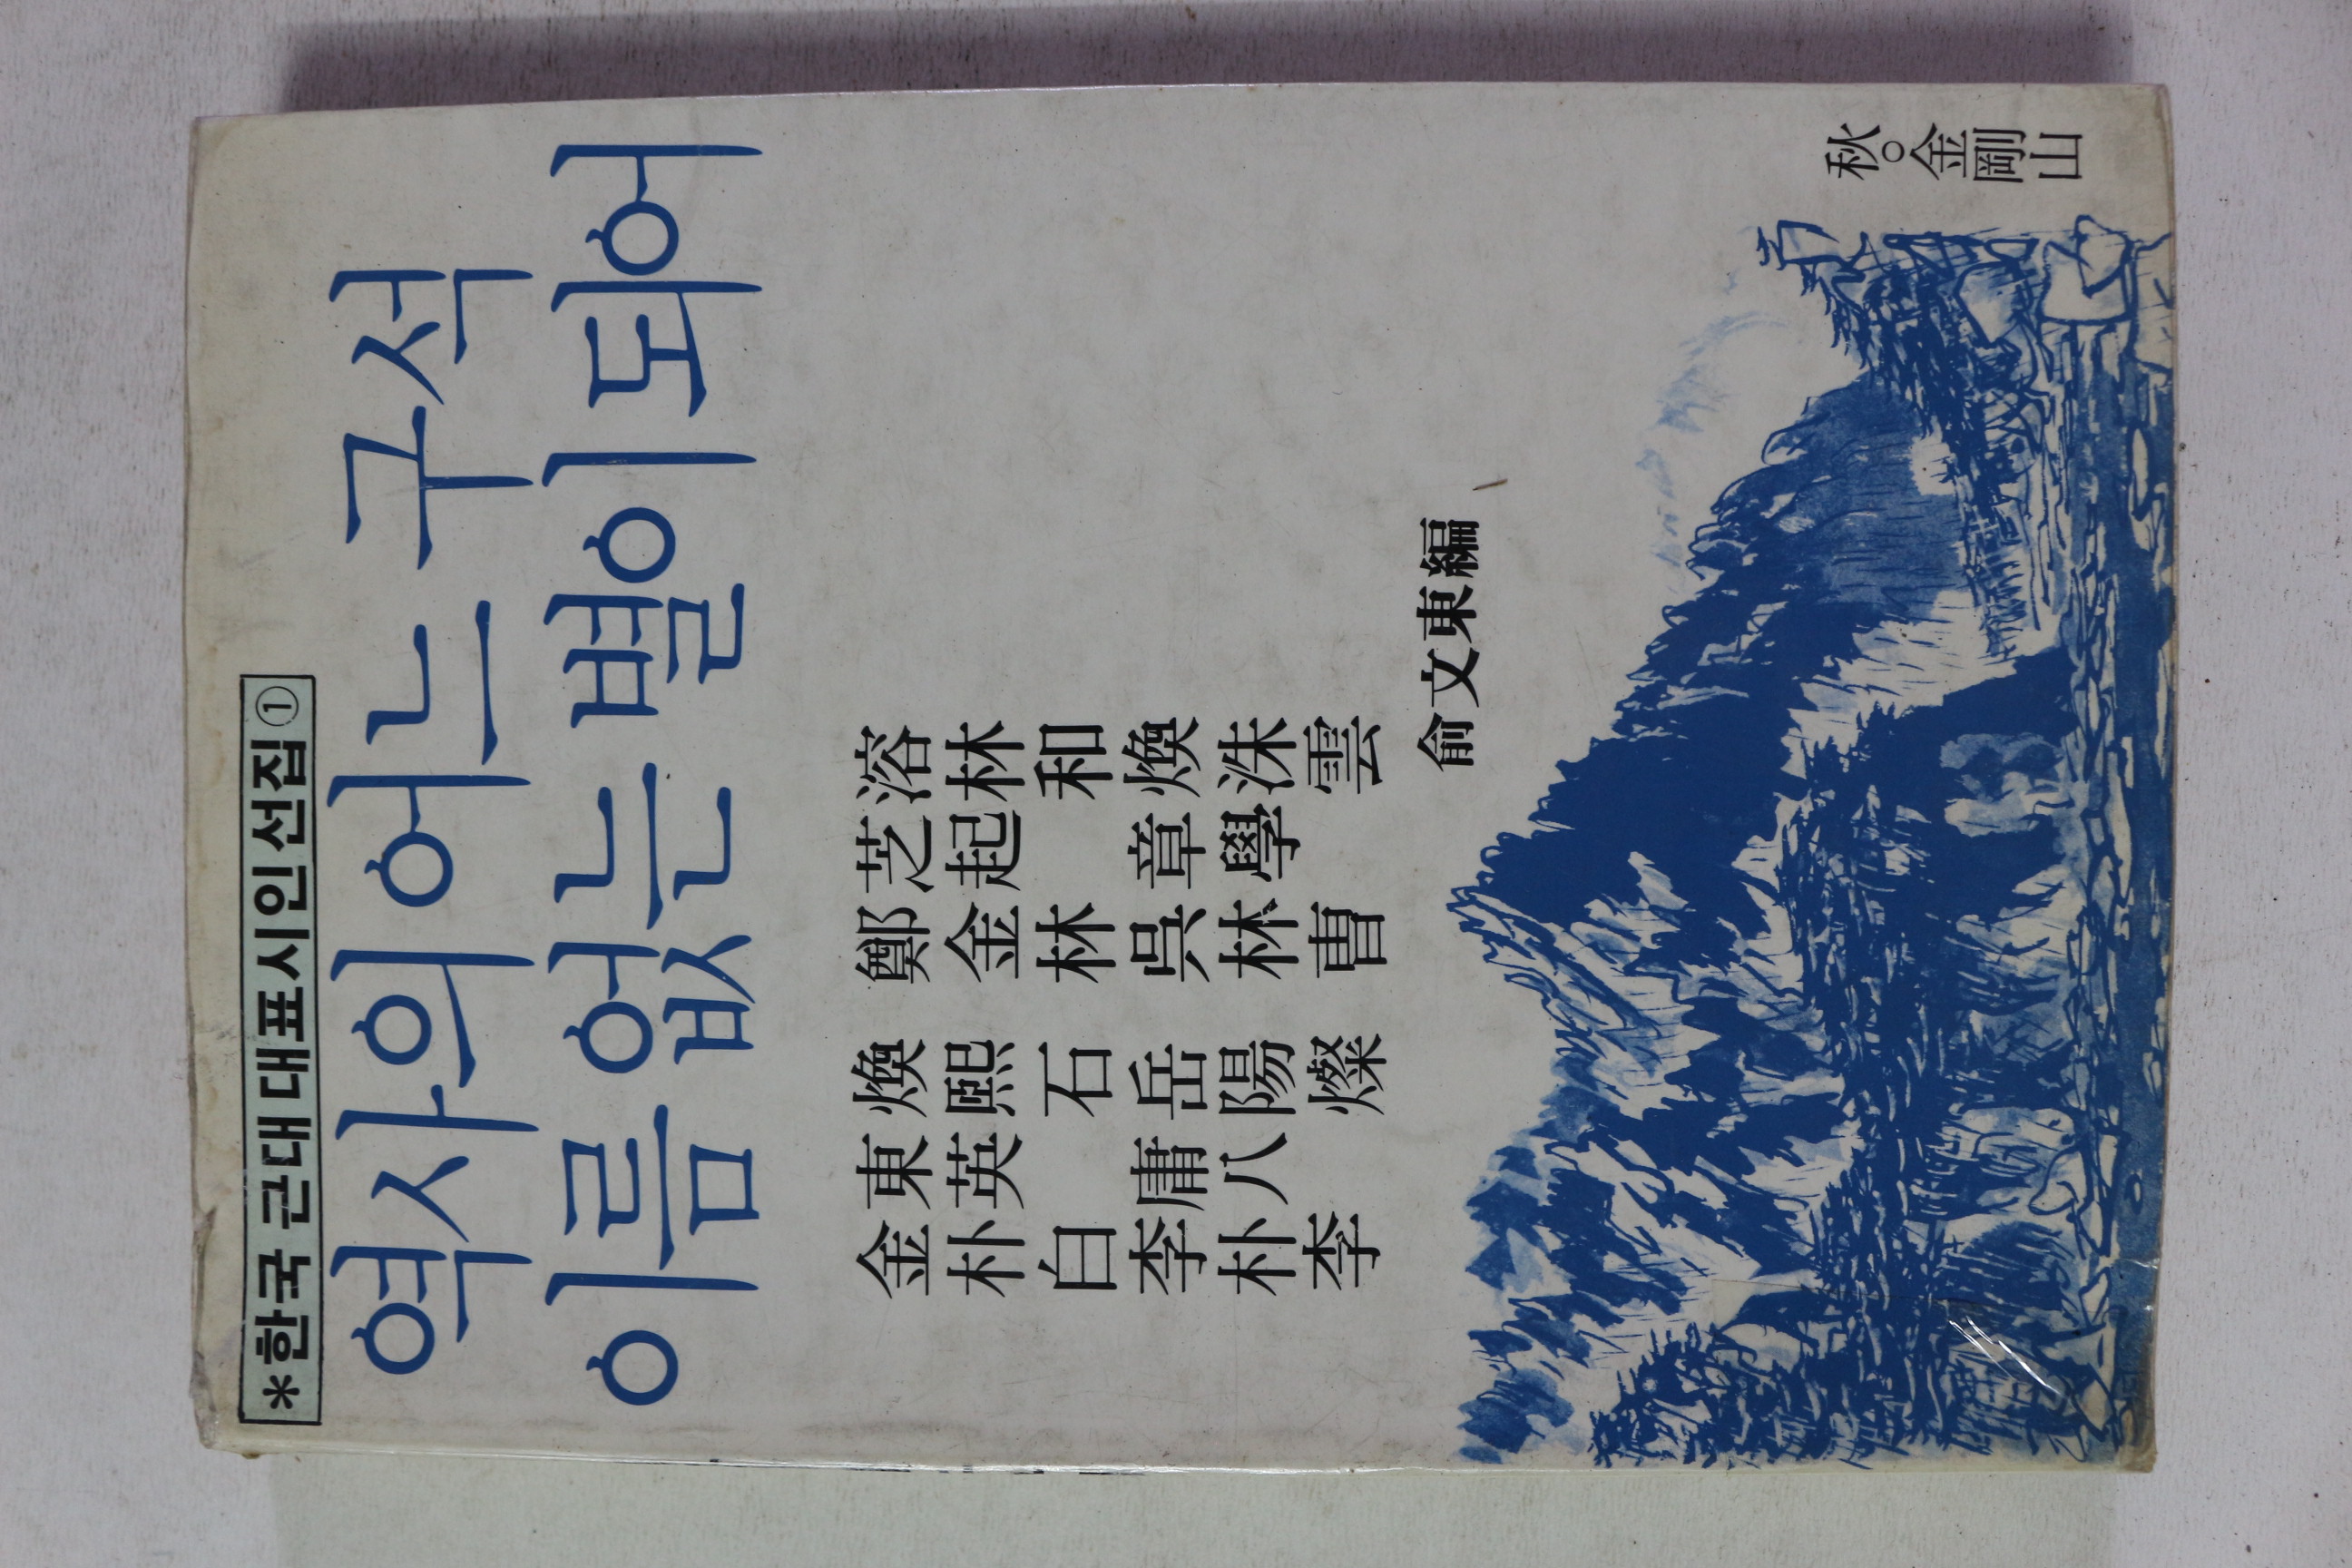 *한국 근대 대표 시인 선집①
역사의 어느 구석
이름 없는 별이 되어
金東煥 鄭芝溶
朴英熙 金起林
白石 林和
李庸岳 吳章煥
朴八陽 林學洙
李燦 曹雲
兪文東編
秋○金剛山